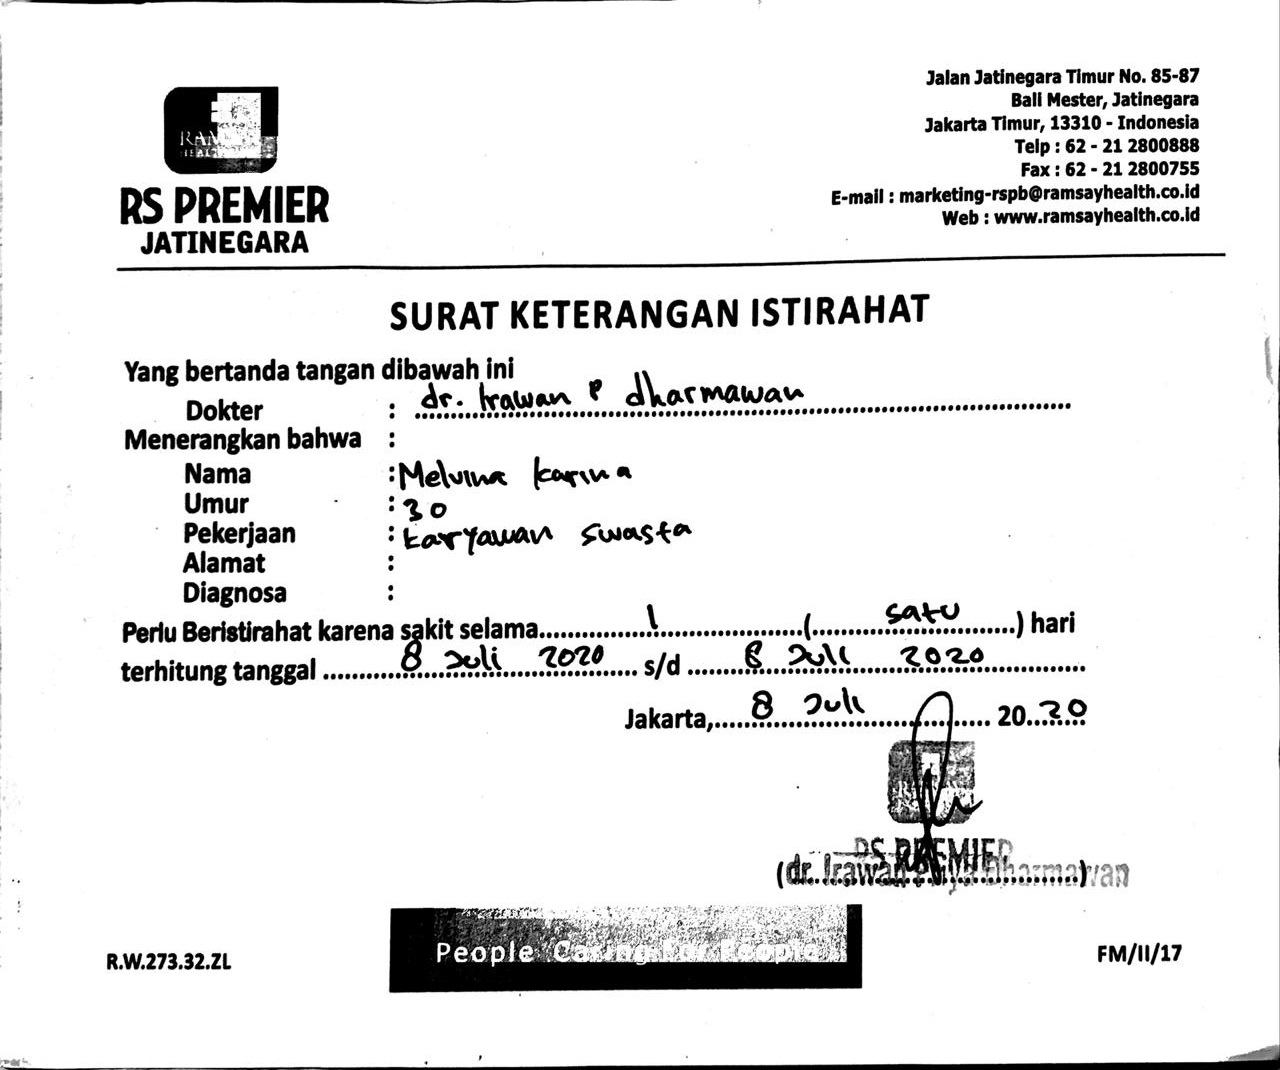 RS PREMIER
JATINEGARA
Jalan Jatinegara Timur No. 85-87
Bali Mester, Jatinegara
Jakarta Timur, 13310 - Indonesia
Telp : 62 - 21 2800888
Fax : 62 - 21 2800755
E-mail : marketing-rspb@ramsayhealth.co.id
Web : www.ramsayhealth.co.id
SURAT KETERANGAN ISTIRAHAT
Yang bertanda tangan dibawah ini
Dokter : dr. Irawan P dharmawan
Menerangkan bahwa :
Nama : Melvina Karina
Umur : 30
Pekerjaan : Karyawan Swasta
Alamat :
Diagnosa :
Perlu Beristirahat karena sakit selama 1 ( satu ) hari
terhitung tanggal 8 Juli 2020 s/d 8 Juli 2020
Jakarta, 8 Juli 2020
RS PREMIER
(dr. Irawan Dharmawan)
People Caring For People
R.W.273.32.ZL
FM/II/17